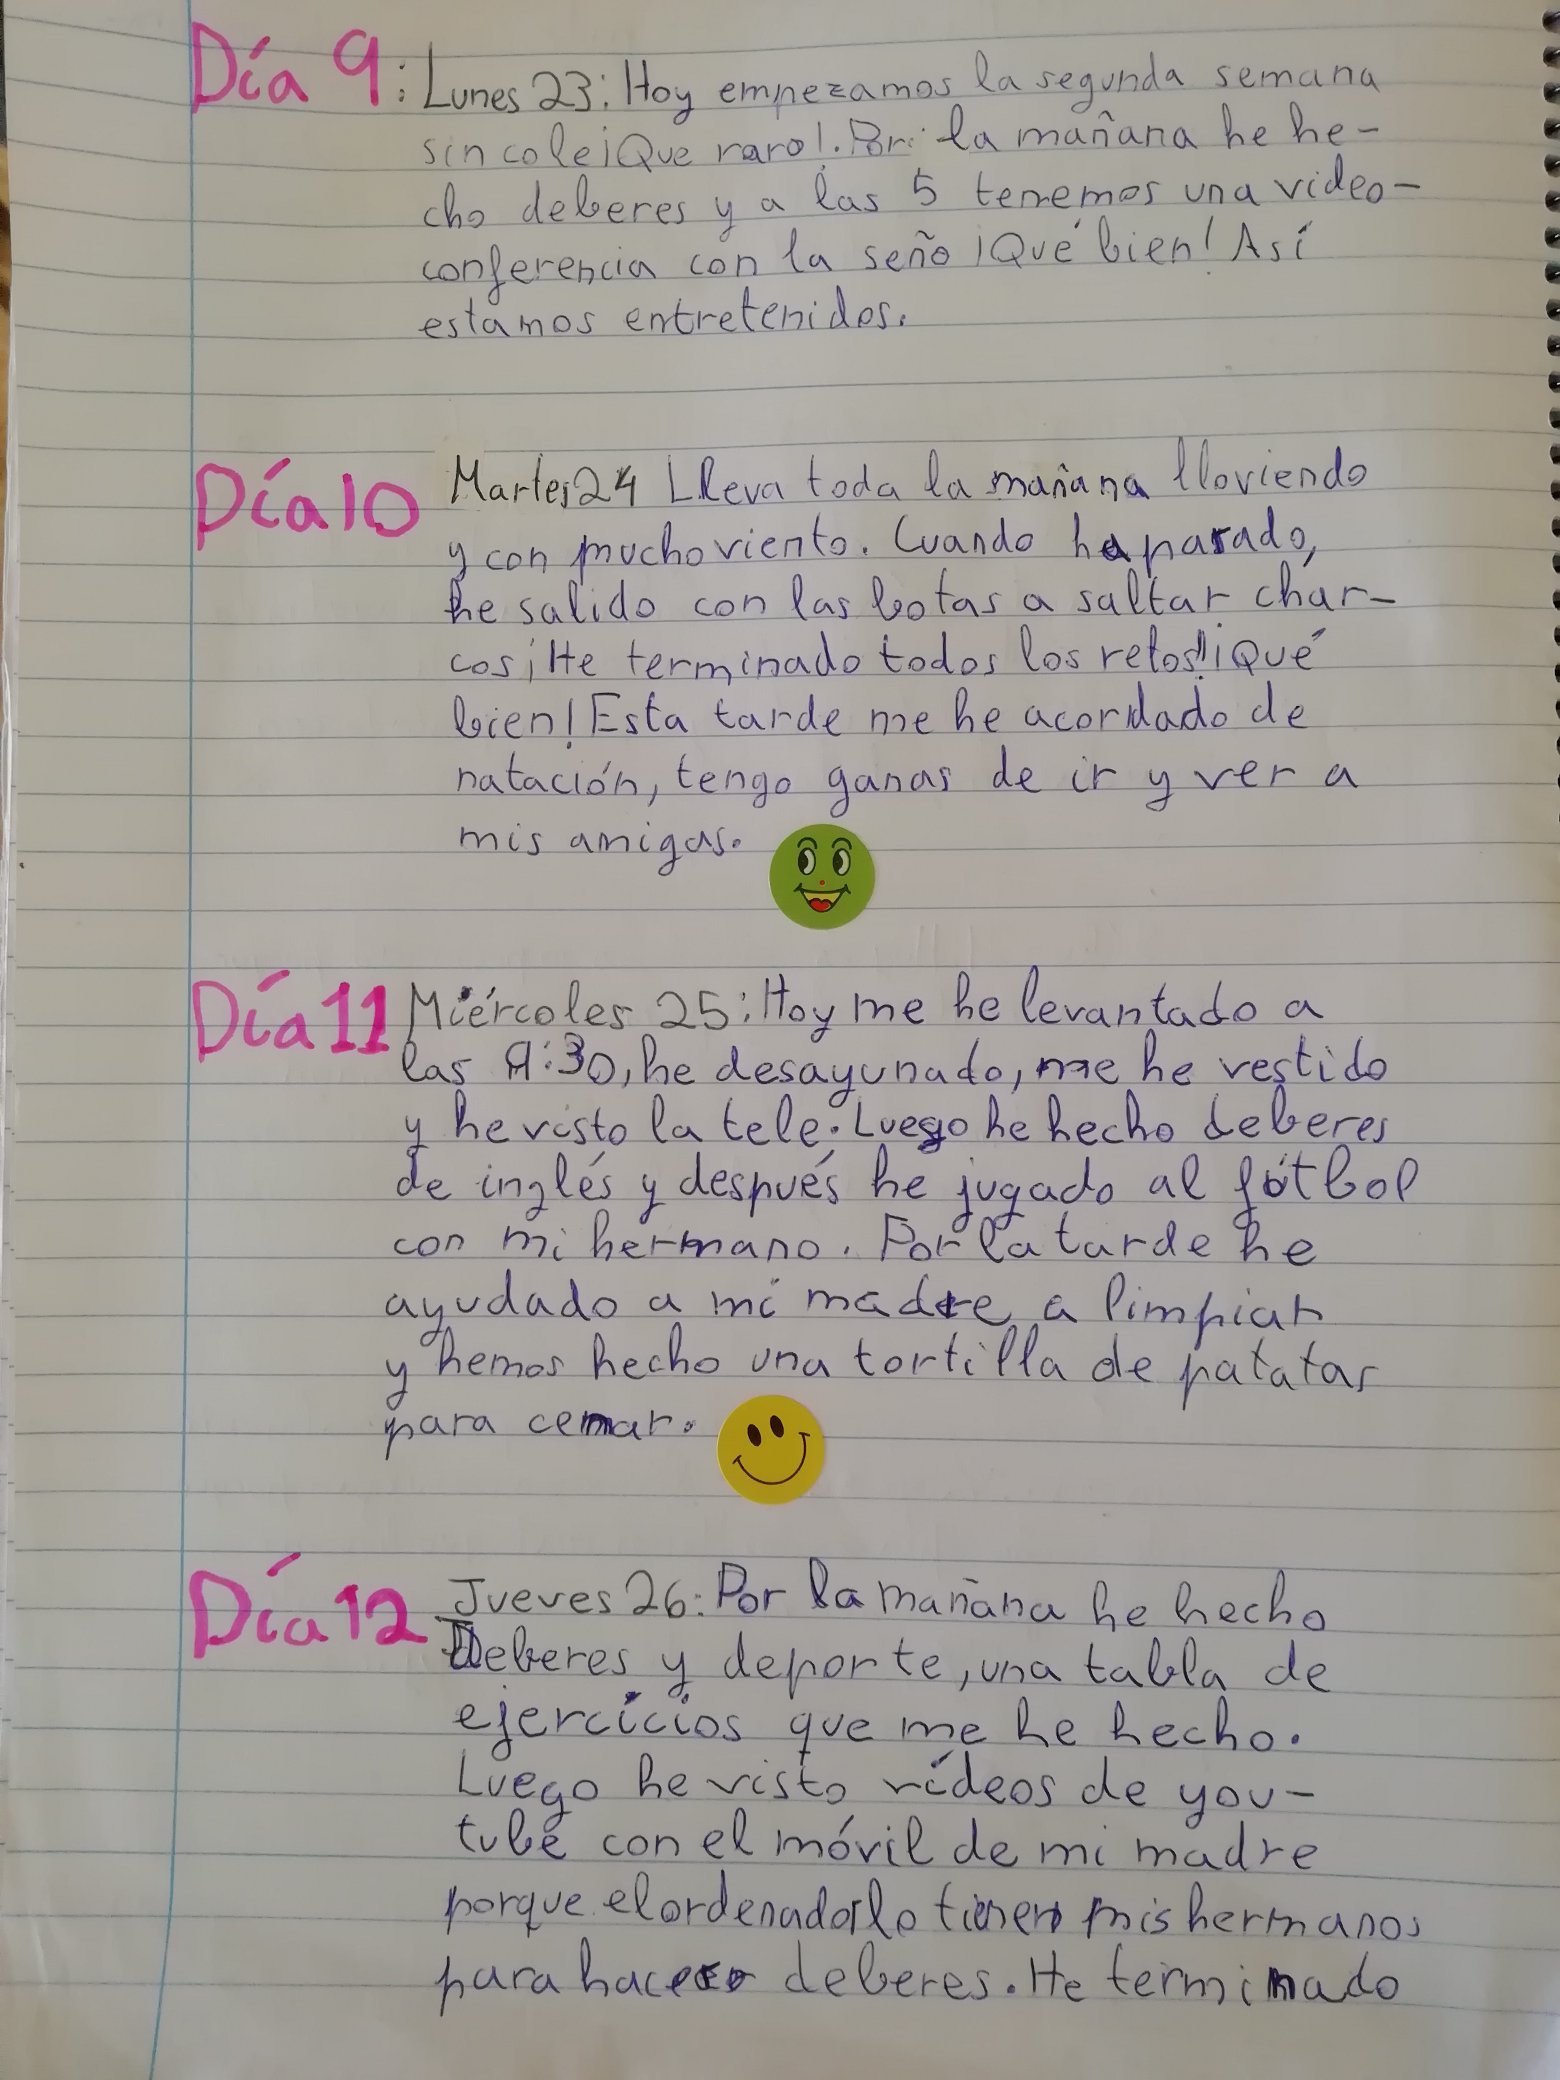 Día 9: Lunes 23: Hoy empezamos la segunda semana
sin cole ¡Que raro!. Por la mañana he he-
cho deberes y a las 5 tenemos una video-
conferencia con la seño ¡Qué bien! Así
estamos entretenidos.
Día 10 Martes 24 Lleva toda la mañana lloviendo
y con mucho viento. Cuando ha parado,
he salido con las botas a saltar char-
cos ¡He terminado todos los retos! ¡Qué
bien! Esta tarde me he acordado de
natación, tengo ganas de ir y ver a
mis amigas.
Día 11 Miércoles 25: Hoy me he levantado a
las 9:30, he desayunado, me he vestido
y he visto la tele. Luego he hecho deberes
de inglés y después he jugado al fútbol
con mi hermano. Por la tarde he
ayudado a mi madre a limpiar
y hemos hecho una tortilla de patatas
para cenar.
Día 12 Jueves 26: Por la mañana he hecho
Deberes y deporte, una tabla de
ejercicios que me he hecho.
Luego he visto vídeos de you-
tube con el móvil de mi madre
porque el ordenador lo tienen mis hermanos
para hacer deberes. He terminado